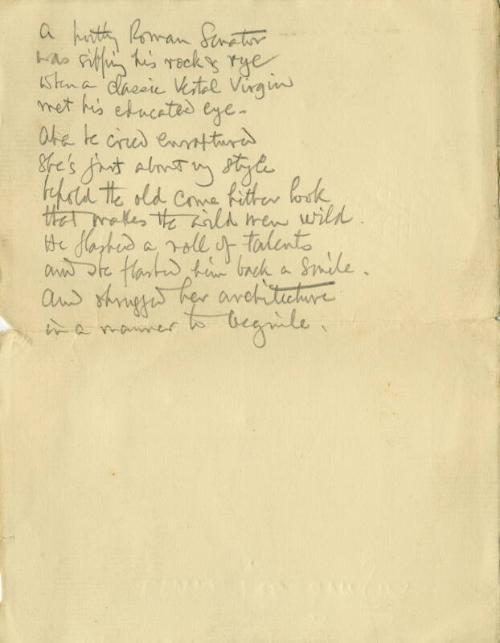 A portly Roman Senator
was sipping his rock & rye
when a classic Vestal Virgin
met his educated eye -
Aha he cried enraptured
She's just about my style
behold the old come hither look
that makes the wild men wild.
He flashed a roll of talents
and she flashed him back a smile.
And shrugged her architecture
in a manner to beguile.